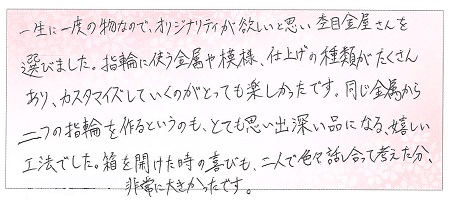 一生に一度の物なので、オリジナリティが欲しいと思い杢目金屋さんを
選びました。指輪に使う金属や模様、仕上げの種類がたくさん
あり、カスタマイズしていくのがとっても楽しかったです。同じ金属から
二つの指輪を作るというのも、とても思い出深い品になる、嬉しい
工法でした。箱を開けた時の喜びも、二人で色々話し合って考えた分、
非常に大きかったです。